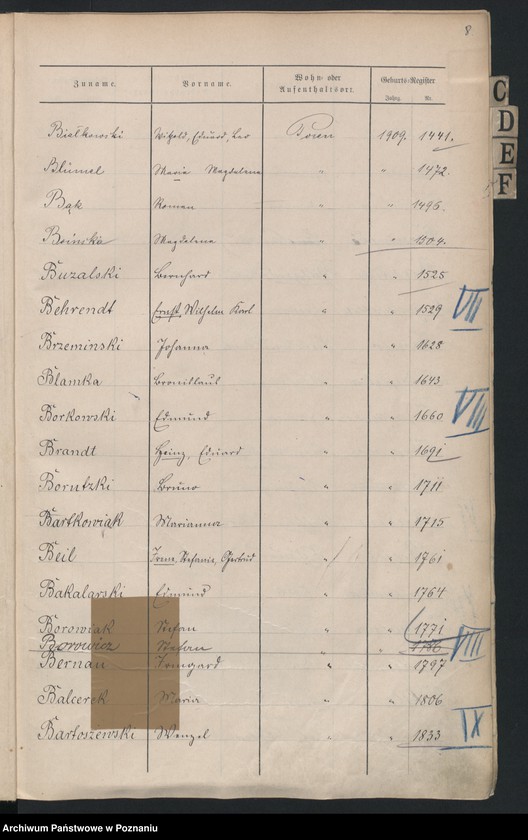 8
Zuname. Vorname. Wohn- oder Aufenthaltsort. Geburts-Register
Jahrg. Nr.
Bielkowski Witold, Eduard, Leo Posen 1909. 1441.
Blümel Maria Magdalena " " 1472.
Bąk Roman " " 1495.
Magdalena " " 1504.
Buzalski Bernhard " " 1525
Behrendt Ernst, Wilhelm Karl " " 1529 VII
Brzeminski Johanna " " 1628
Blamka " " 1643
Borkowski Edmund " " 1660 VIII
Brandt Heinz, Eduard " " 1691
Borutzki Bruno " " 1711
Bartkowiak Marianna " " 1715
Beil Stefanie, Gertrud " " 1761
Bakalarski Edmund " " 1764
Borowiak Stefan 1771
Borowicz Stefan " " VIII
Bernau Irmgard " " 1797
Balcerek Maria " " 1806
Bartoszewski Wenzel " " 1833 IX
C
D
E
F
Archiwum Państwowe w Poznaniu